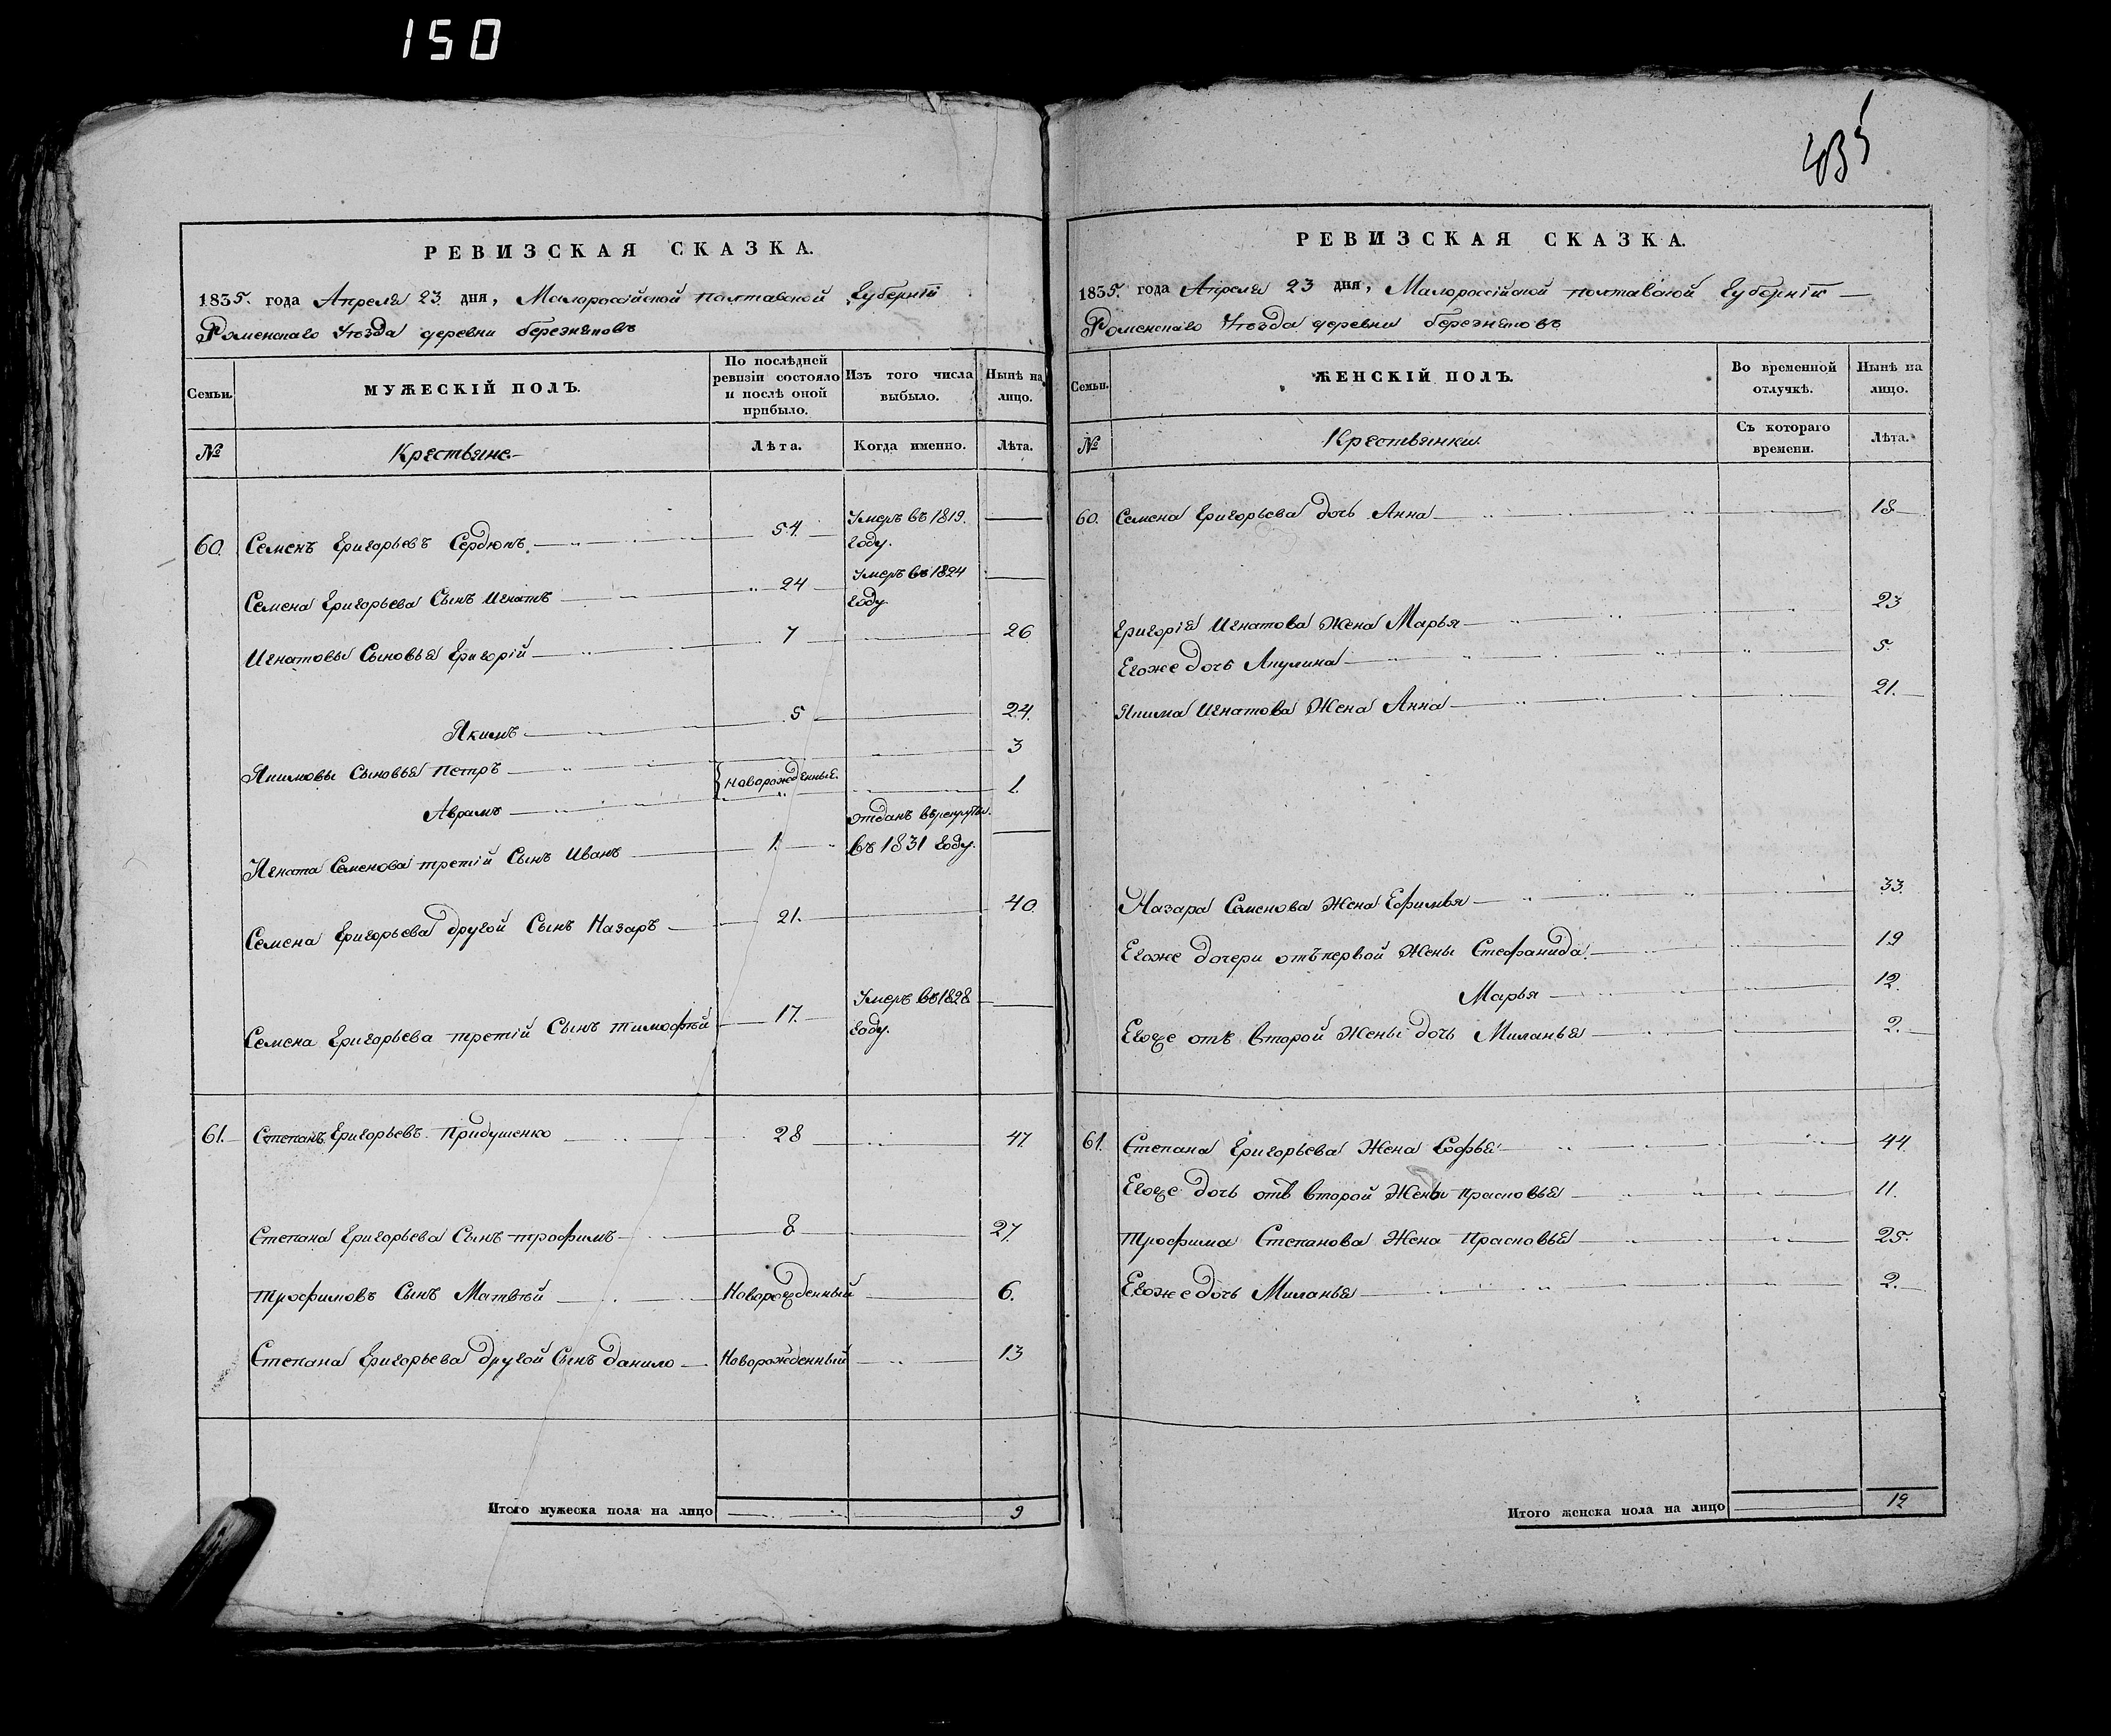 150
435
РЕВИЗСКАЯ СКАЗКА.
1835. года Апреля 23 дня, Малороссійской полтавской Губерніи
Роменскаго Уѣзда деревни березняковъ
Семьи.
МУЖЕСКІЙ ПОЛЪ.
По послѣдней ревизіи состояло и послѣ оной прибыло.
Изъ того числа выбыло.
Нынѣ на лицо.
№ Крестьяне Лѣта. Когда именно. Лѣта.
60. Семенъ Григорьевъ Сердюкъ. 54. Умеръ въ 1819. году.
Семена Григорьева Сынъ Игнатъ 24 Умеръ въ 1824 году.
Игнатовы Сыновья Григорій 7 26
Якимъ 5 24.
Якимовы Сыновья Петръ Новорожденные. 3
Аврамъ 1.
Игната Семенова третій Сынъ Иванъ 1. отданъ врекруты. въ 1831 году.
Семена Григорьева другой Сынъ Назаръ 21. 40
Семена Григорьева третій Сынъ Тимофѣй 17. Умеръ въ 1828 году.
61. Степанъ Григорьевъ Придушенко 28 47
Степана Григорьева Сынъ трофимъ 8 27.
Трофимовъ Сынъ Матвѣй Новорожденный 6.
Степана Григорьева другой Сынъ данило Новорожденный 13
Итого мужеска пола на лицо 9
РЕВИЗСКАЯ СКАЗКА.
1835. года Апреля 23 дня, Малороссійской полтавской Губерніи
Роменскаго Уѣзда деревни березняковъ
Семьи.
ЖЕНСКІЙ ПОЛЪ.
Во временной отлучкѣ.
Нынѣ на лицо.
№ Крестьянки Съ котораго времени. Лѣта.
60. Семена Григорьева дочь Анна 18
Григорія Игнатова Жена Марья 23
Егоже дочь Акулина 5.
Якима Игнатова Жена Анна 21.
Назара Семенова Жена Ефимья 33
Егоже дочери отъ первой Жены Стефанида 19
Марья 12.
Егоже отъ второй Жены дочь Миланья 2.
61. Степана Григорьева Жена Софья 44.
Егоже дочь отъ второй Жены Прасковья 11.
Трофима Степанова Жена Прасковья 25.
Егоже дочь Миланья 2.
Итого женска пола на лицо 12